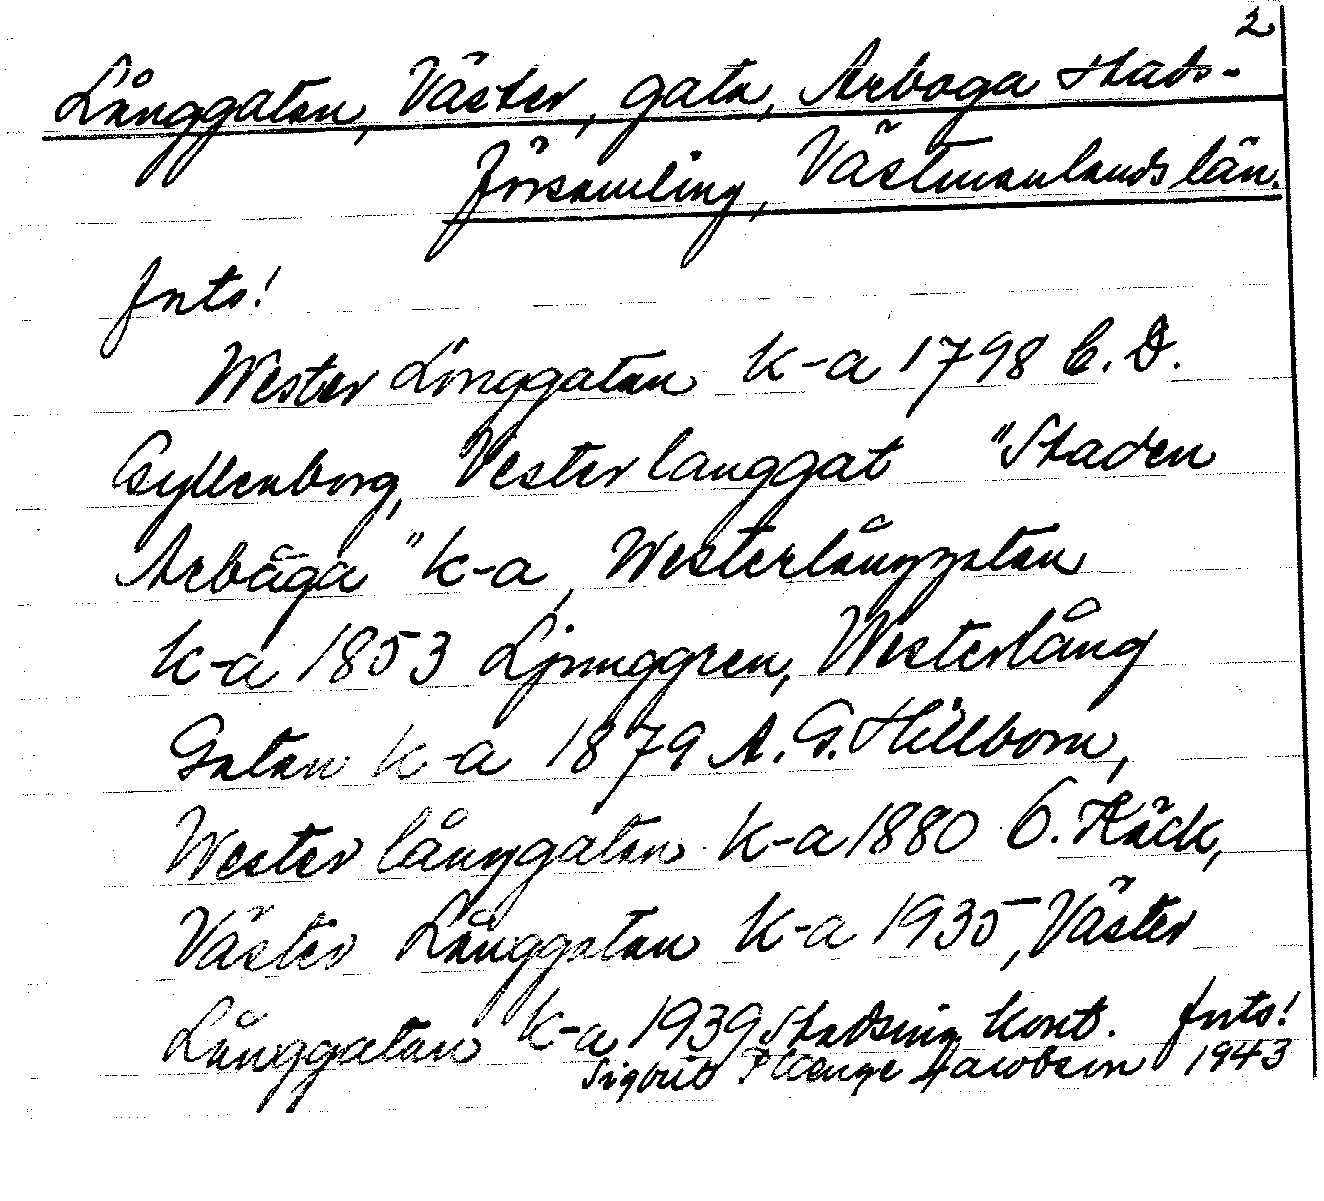 2
Långgatan, Väster, gata, Arboga stads-
församling, Västmanlands län.
Forts!
Wester Långgatan k-a 1798 C. D.
Gyllenborg, Vester langgat "Staden
Arbåga" k-a, Westerlånggatan
k-a 1853 Ljunggren, Westerlång
Gatan k-a 1879 A. G. Hillbom,
Wester långgatan k-a 1880 O. Häck,
Väster Långgatan k-a 1935, Väster
Långgatan k-a 1939 Stadsing kont. Forts!
Sigbrit Plænge Jacobson 1943